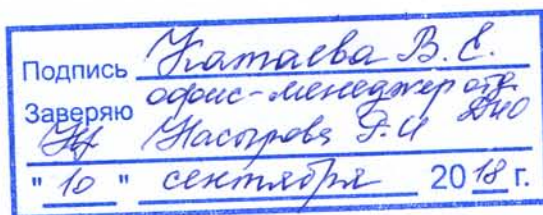 Подпись Катаева В. Е.
Заверяю офис-менеджер отд.
Насырова Г. И
" 10 " сентября 2018 г.